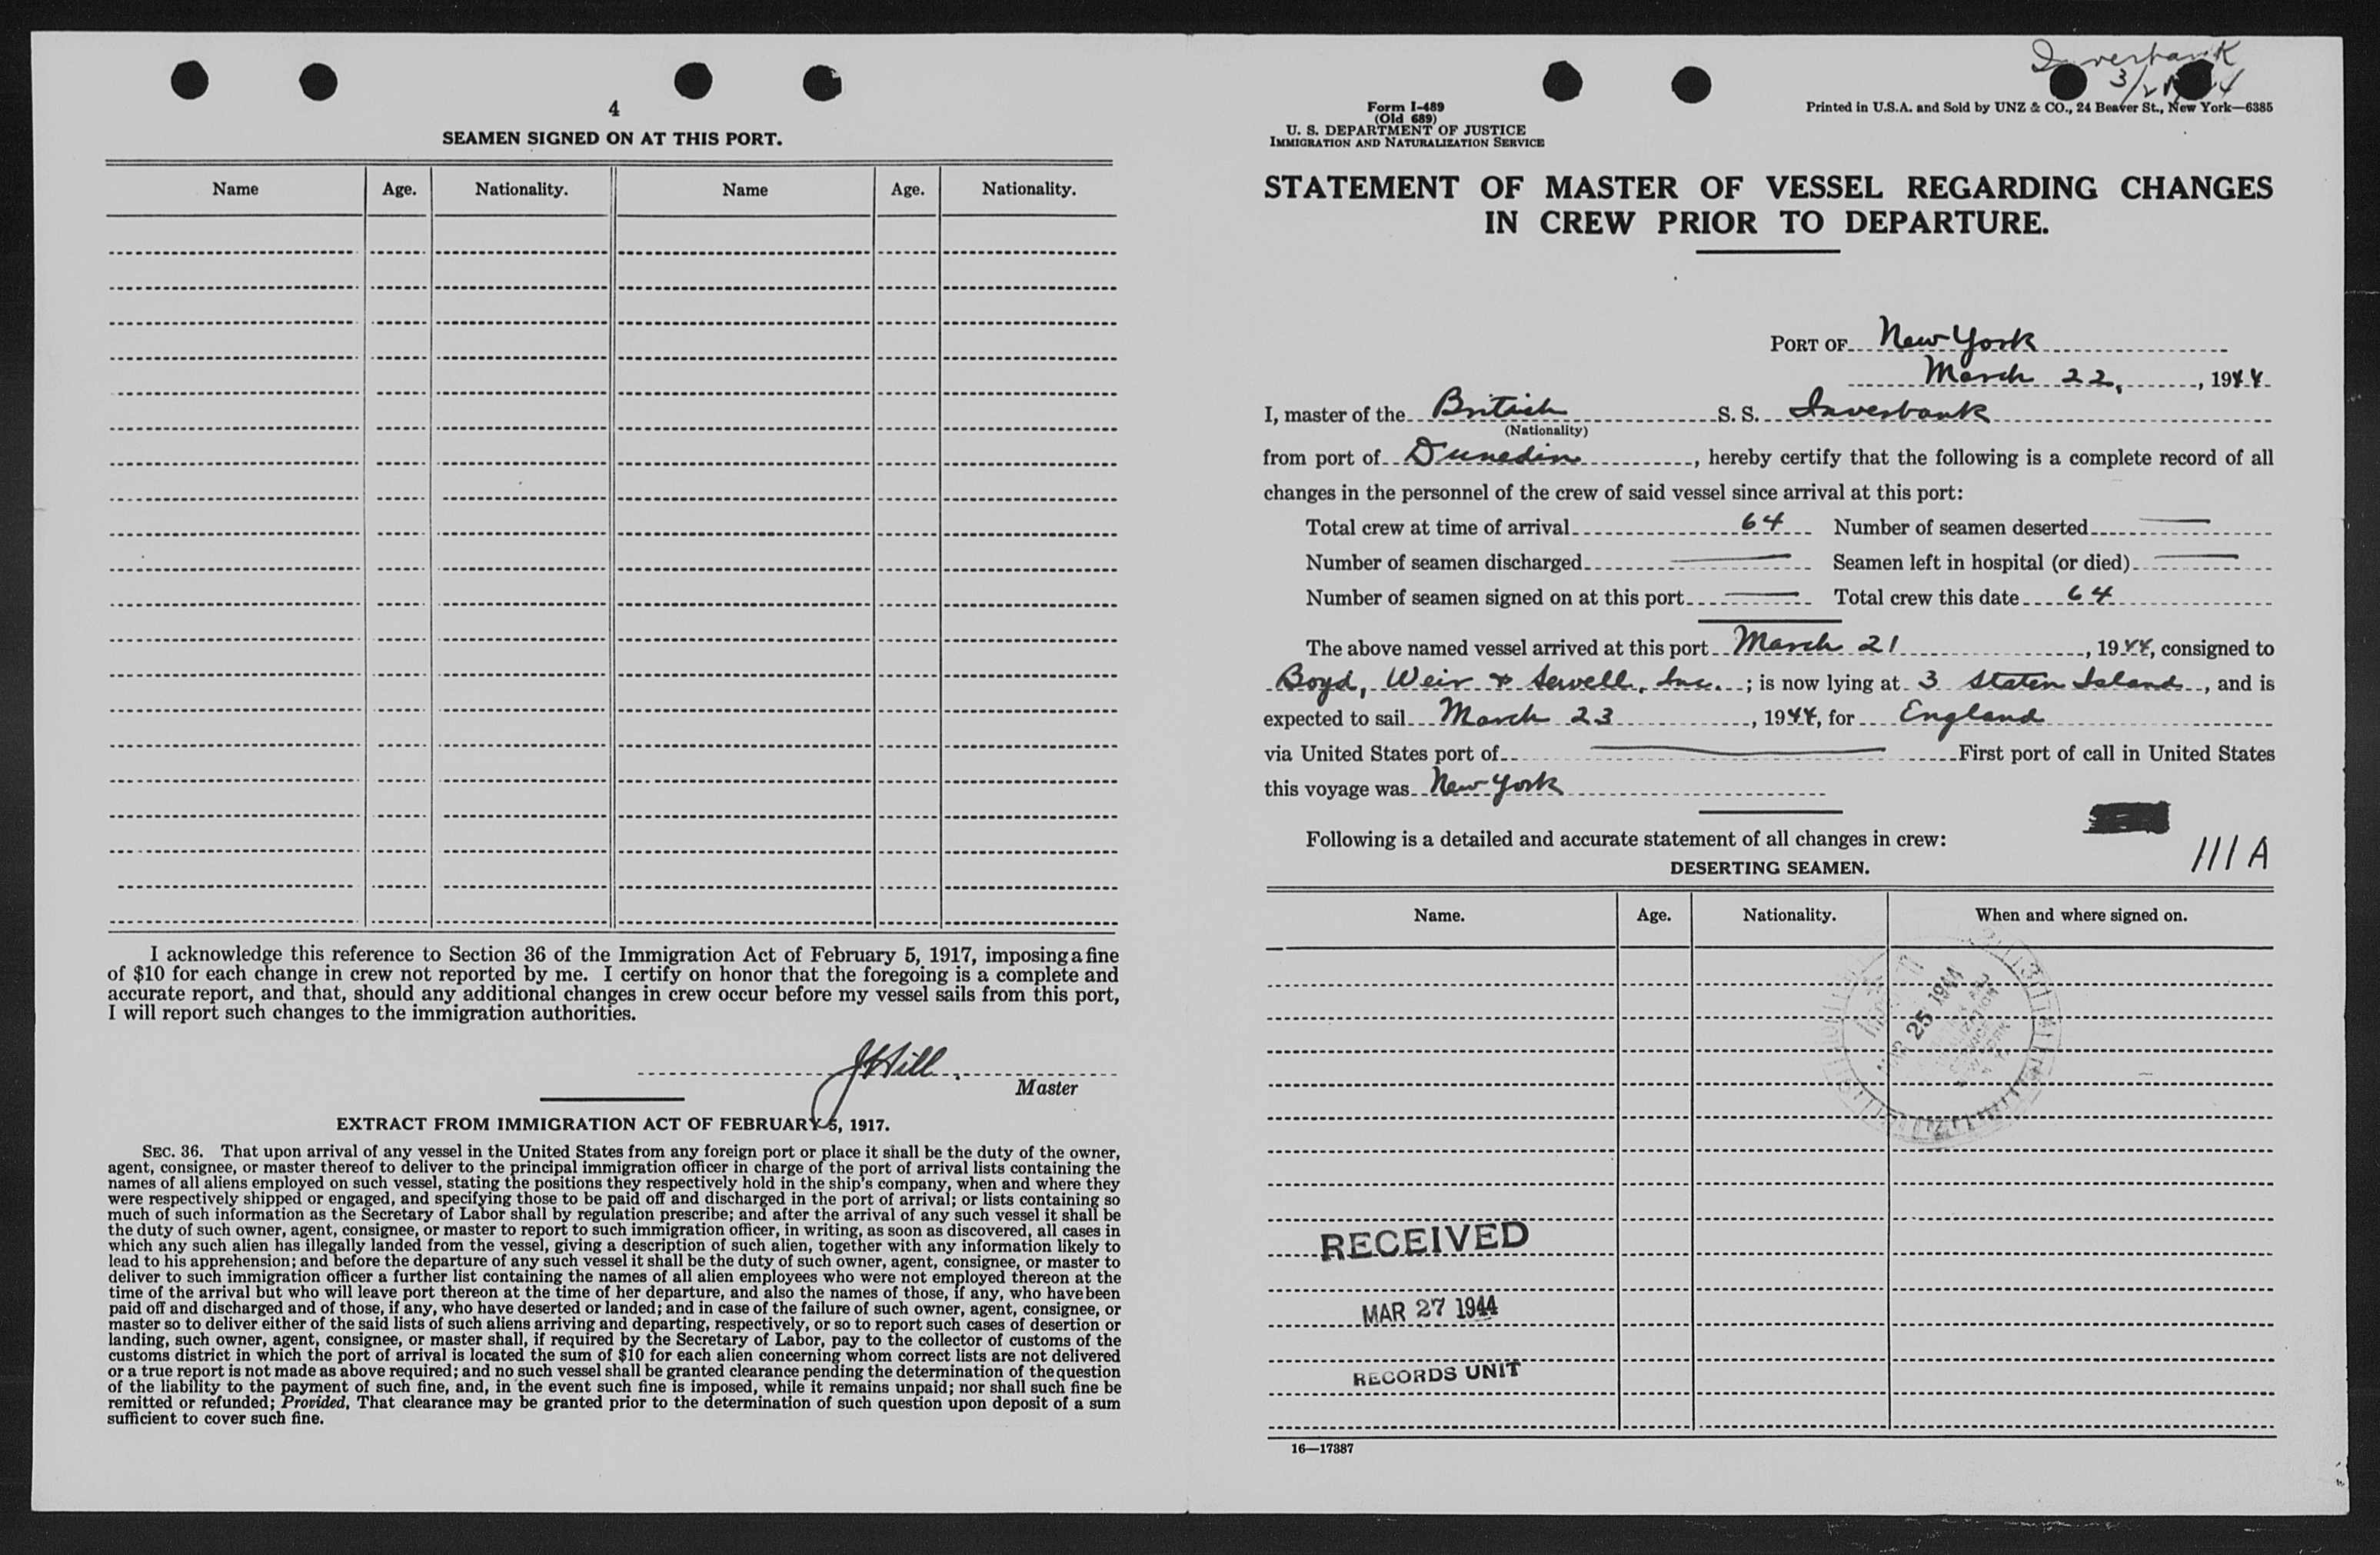 4
SEAMEN SIGNED ON AT THIS PORT.
Name Age. Nationality. Name Age. Nationality.
I acknowledge this reference to Section 36 of the Immigration Act of February 5, 1917, imposing a fine
of $10 for each change in crew not reported by me. I certify on honor that the foregoing is a complete and
accurate report, and that, should any additional changes in crew occur before my vessel sails from this port,
I will report such changes to the immigration authorities.
JHill.
Master
EXTRACT FROM IMMIGRATION ACT OF FEBRUARY 5, 1917.
SEC. 36. That upon arrival of any vessel in the United States from any foreign port or place it shall be the duty of the owner,
agent, consignee, or master thereof to deliver to the principal immigration officer in charge of the port of arrival lists containing the
names of all aliens employed on such vessel, stating the positions they respectively hold in the ship's company, when and where they
were respectively shipped or engaged, and specifying those to be paid off and discharged in the port of arrival; or lists containing so
much of such information as the Secretary of Labor shall by regulation prescribe; and after the arrival of any such vessel it shall be
the duty of such owner, agent, consignee, or master to report to such immigration officer, in writing, as soon as discovered, all cases in
which any such alien has illegally landed from the vessel, giving a description of such alien, together with any information likely to
lead to his apprehension; and before the departure of any such vessel it shall be the duty of such owner, agent, consignee, or master to
deliver to such immigration officer a further list containing the names of all alien employees who were not employed thereon at the
time of the arrival but who will leave port thereon at the time of her departure, and also the names of those, if any, who have been
paid off and discharged and of those, if any, who have deserted or landed; and in case of the failure of such owner, agent, consignee, or
master so to deliver either of the said lists of such aliens arriving and departing, respectively, or so to report such cases of desertion or
landing, such owner, agent, consignee, or master shall, if required by the Secretary of Labor, pay to the collector of customs of the
customs district in which the port of arrival is located the sum of $10 for each alien concerning whom correct lists are not delivered
or a true report is not made as above required; and no such vessel shall be granted clearance pending the determination of the question
of the liability to the payment of such fine, and, in the event such fine is imposed, while it remains unpaid; nor shall such fine be
remitted or refunded; Provided, That clearance may be granted prior to the determination of such question upon deposit of a sum
sufficient to cover such fine.
Inverbank
Form I-489
(Old 689)
U. S. DEPARTMENT OF JUSTICE
IMMIGRATION AND NATURALIZATION SERVICE
Printed in U.S.A. and Sold by UNZ & CO., 24 Beaver St., New York—6385
STATEMENT OF MASTER OF VESSEL REGARDING CHANGES
IN CREW PRIOR TO DEPARTURE.
PORT OF New York
March 22, , 1944
I, master of the British S. S. Inverbank
(Nationality)
from port of Dunedin, hereby certify that the following is a complete record of all
changes in the personnel of the crew of said vessel since arrival at this port:
Total crew at time of arrival 64 Number of seamen deserted —
Number of seamen discharged — Seamen left in hospital (or died) —
Number of seamen signed on at this port — Total crew this date 64
The above named vessel arrived at this port March 21, 1944, consigned to
Boyd, Weir & Sewell, Inc.; is now lying at 3 Staten Island, and is
expected to sail March 23, 1944, for England
via United States port of — First port of call in United States
this voyage was New York
Following is a detailed and accurate statement of all changes in crew:
111 A
DESERTING SEAMEN.
Name. Age. Nationality. When and where signed on.
MAR 25 1944
RECEIVED
MAR 27 1944
RECORDS UNIT
16—17387